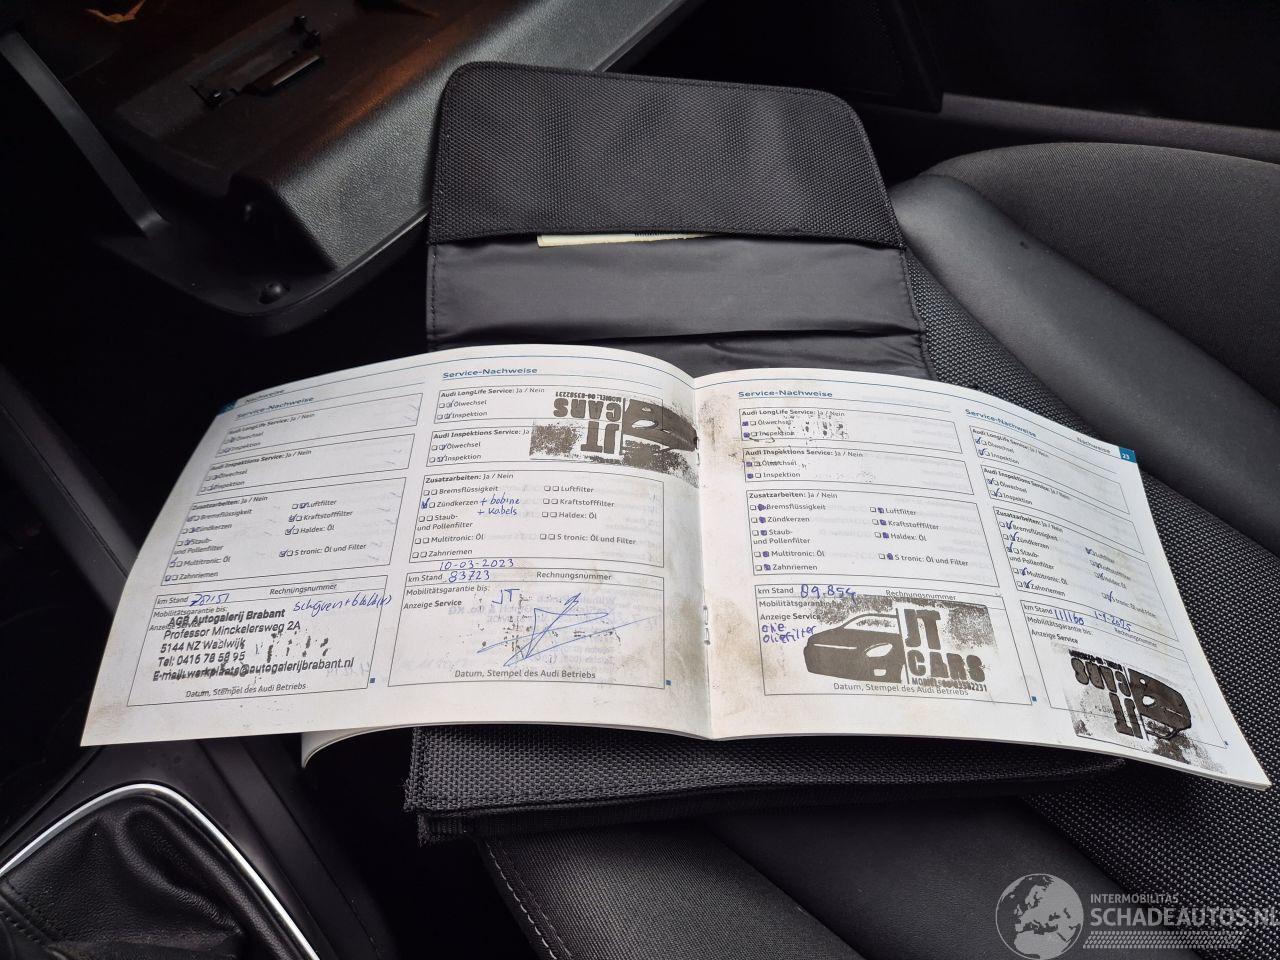 Nachweise
Service-Nachweise
Audi LongLife Service: Ja / Nein
Ölwechsel
Inspektion
Audi Inspektions Service: Ja / Nein
Ölwechsel
Inspektion
Zusatzarbeiten: Ja / Nein
Bremsflüssigkeit
Luftfilter
Zündkerzen
Kraftstofffilter
Staub-
und Pollenfilter
Haldex: Öl
Multitronic: Öl
S tronic: Öl und Filter
Zahnriemen
km Stand
Rechnungsnummer
Mobilitätsgarantie bis:
Anzeige Service
AGB Autogalerij Brabant
Professor Minckelersweg 2A
5144 NZ Waalwijk
Tel: 0416 78 58 95
E-mail: werkplaats@autogalerijbrabant.nl
Datum, Stempel des Audi Betriebs
Service-Nachweise
Audi LongLife Service: Ja / Nein
Ölwechsel
Inspektion
JT
CARS
Audi Inspektions Service: Ja
Ölwechsel
Inspektion
Zusatzarbeiten: Ja / Nein
Bremsflüssigkeit
Luftfilter
Zündkerzen + bobine
Kraftstofffilter
+ Kabels
Staub-
und Pollenfilter
Haldex: Öl
Multitronic: Öl
S tronic: Öl und Filter
Zahnriemen
10-03-2023
km Stand 83723
Rechnungsnummer
Mobilitätsgarantie bis:
Anzeige Service
JT
Datum, Stempel des Audi Betriebs
Service-Nachweise
Audi LongLife Service: Ja / Nein
Ölwechsel
Inspektion
Audi Inspektions Service: Ja / Nein
Ölwechsel
Inspektion
Zusatzarbeiten: Ja / Nein
Bremsflüssigkeit
Luftfilter
Zündkerzen
Kraftstofffilter
Staub-
und Pollenfilter
Haldex: Öl
Multitronic: Öl
S tronic: Öl und Filter
Zahnriemen
km Stand 89.854
Rechnungsnummer
Mobilitätsgarantie bis:
Anzeige Service
olie
Oliefilter
JT
CARS
Datum, Stempel des Audi Betriebs
Nachweise
23
Service-Nachweise
Audi LongLife Service: Ja / Nein
Ölwechsel
Inspektion
Audi Inspektions Service: Ja / Nein
Ölwechsel
Inspektion
Zusatzarbeiten: Ja / Nein
Bremsflüssigkeit
Luftfilter
Zündkerzen
Kraftstofffilter
Staub-
und Pollenfilter
Haldex: Öl
Multitronic: Öl
S tronic: Öl und Filter
Zahnriemen
km Stand
Rechnungsnummer
Mobilitätsgarantie bis:
Anzeige Service
JT
CARS
Datum, Stempel des Audi Betriebs
INTERMOBILITAS
SCHADEAUTOS.NL